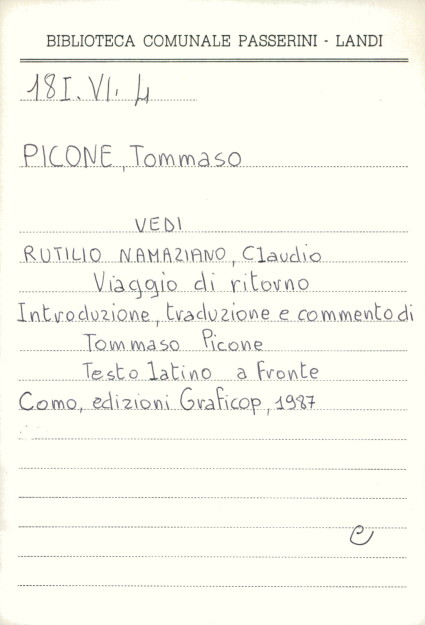 BIBLIOTECA COMUNALE PASSERINI - LANDI
18I.VI. 4
PICONE, Tommaso
VEDI
RUTILIO NAMAZIANO, Claudio
Viaggio di ritorno
Introduzione, traduzione e commento di
Tommaso Picone
Testo latino a fronte
Como, edizioni Graficop, 1987
e